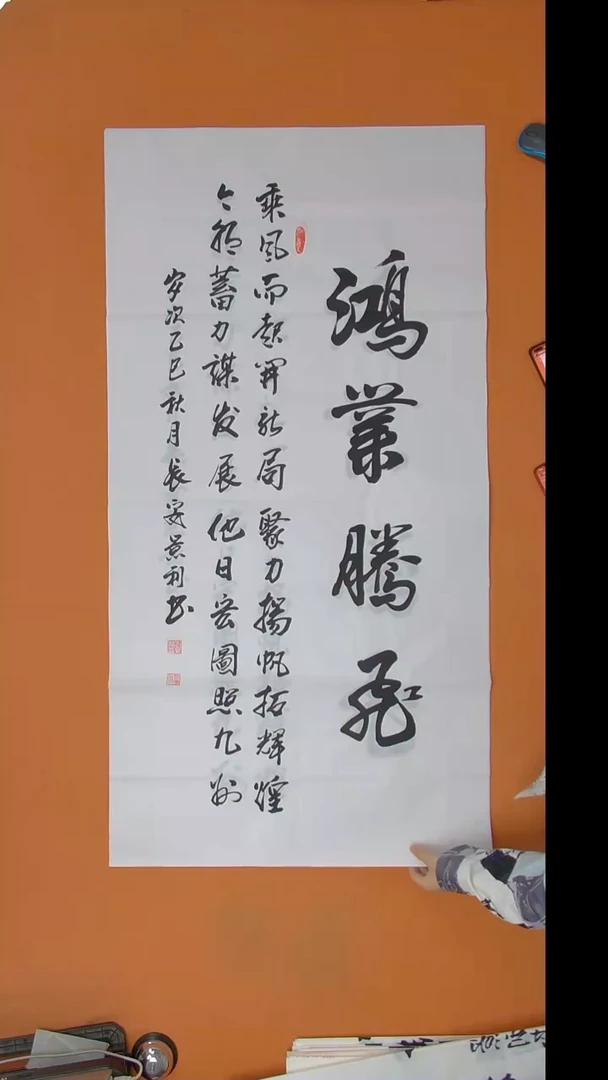 鴻業騰飛
乘风而起開新局聚力揚帆拓輝煌
今朝蓄力謀发展他日宏圖照九州
岁次乙巳秋月長安景利书